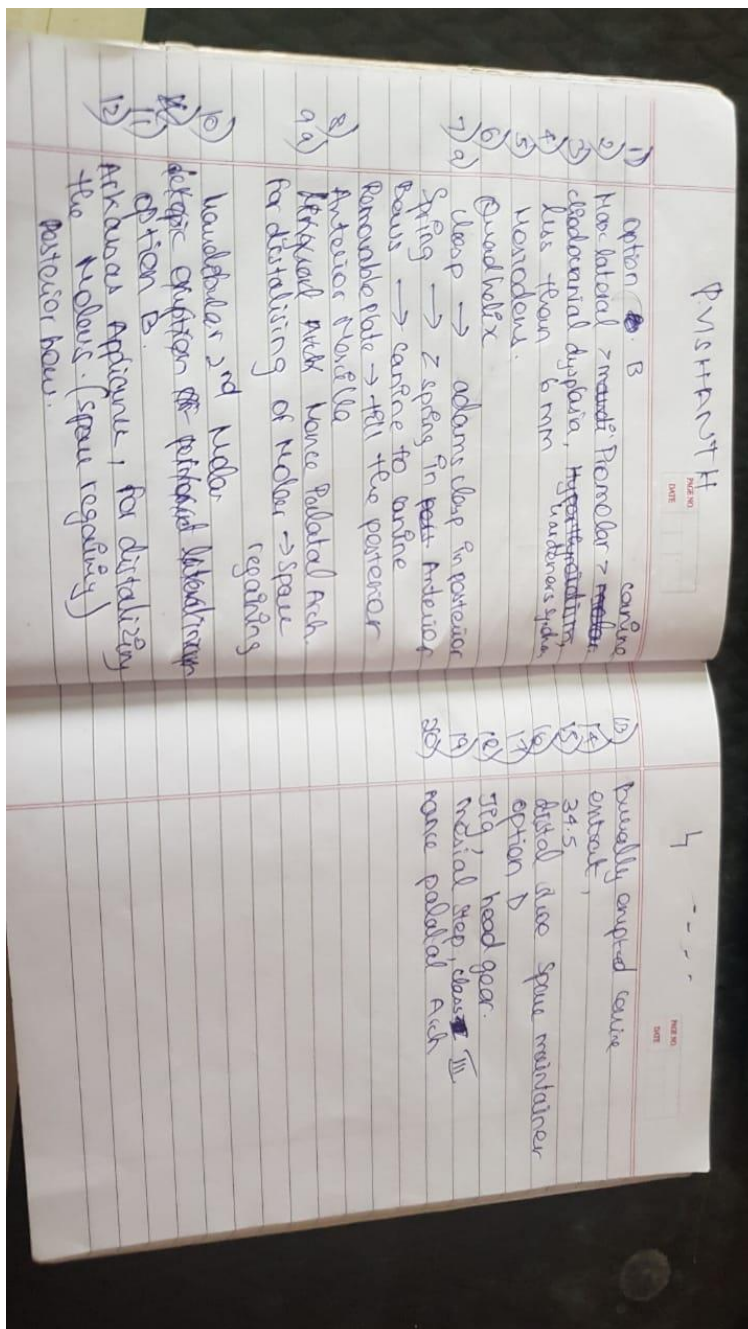 PVISHANTH
PAGE NO.
DATE
1) option B
canine
2) Max lateral > Premolar >
3) cleidocranial dysplasia,
4) less than 6 mm
5) Mesiodens.
6) Quadhelix
7) a) clasp → adams clasp in posterior
Spring → Z spring in Anterior
Bows → canine to canine
Removable plate → till the posterior
8) Anterior Maxilla
9 a) Nance Palatal Arch
for distalizing of Molar → Space
regaining
10) Mandibular 2nd Molar
ectopic eruption
11) option B.
12) Arkansas Appliance, for distalizing
the Molars. (space regaining)
posterior bow.
PAGE NO.
DATE
13) Buccally erupted canine
14) extract,
15) 34.5
16) distal shoe space maintainer
17) option D
18) Jig, head gear.
19) mesial step, class III
20) nance palatal Arch